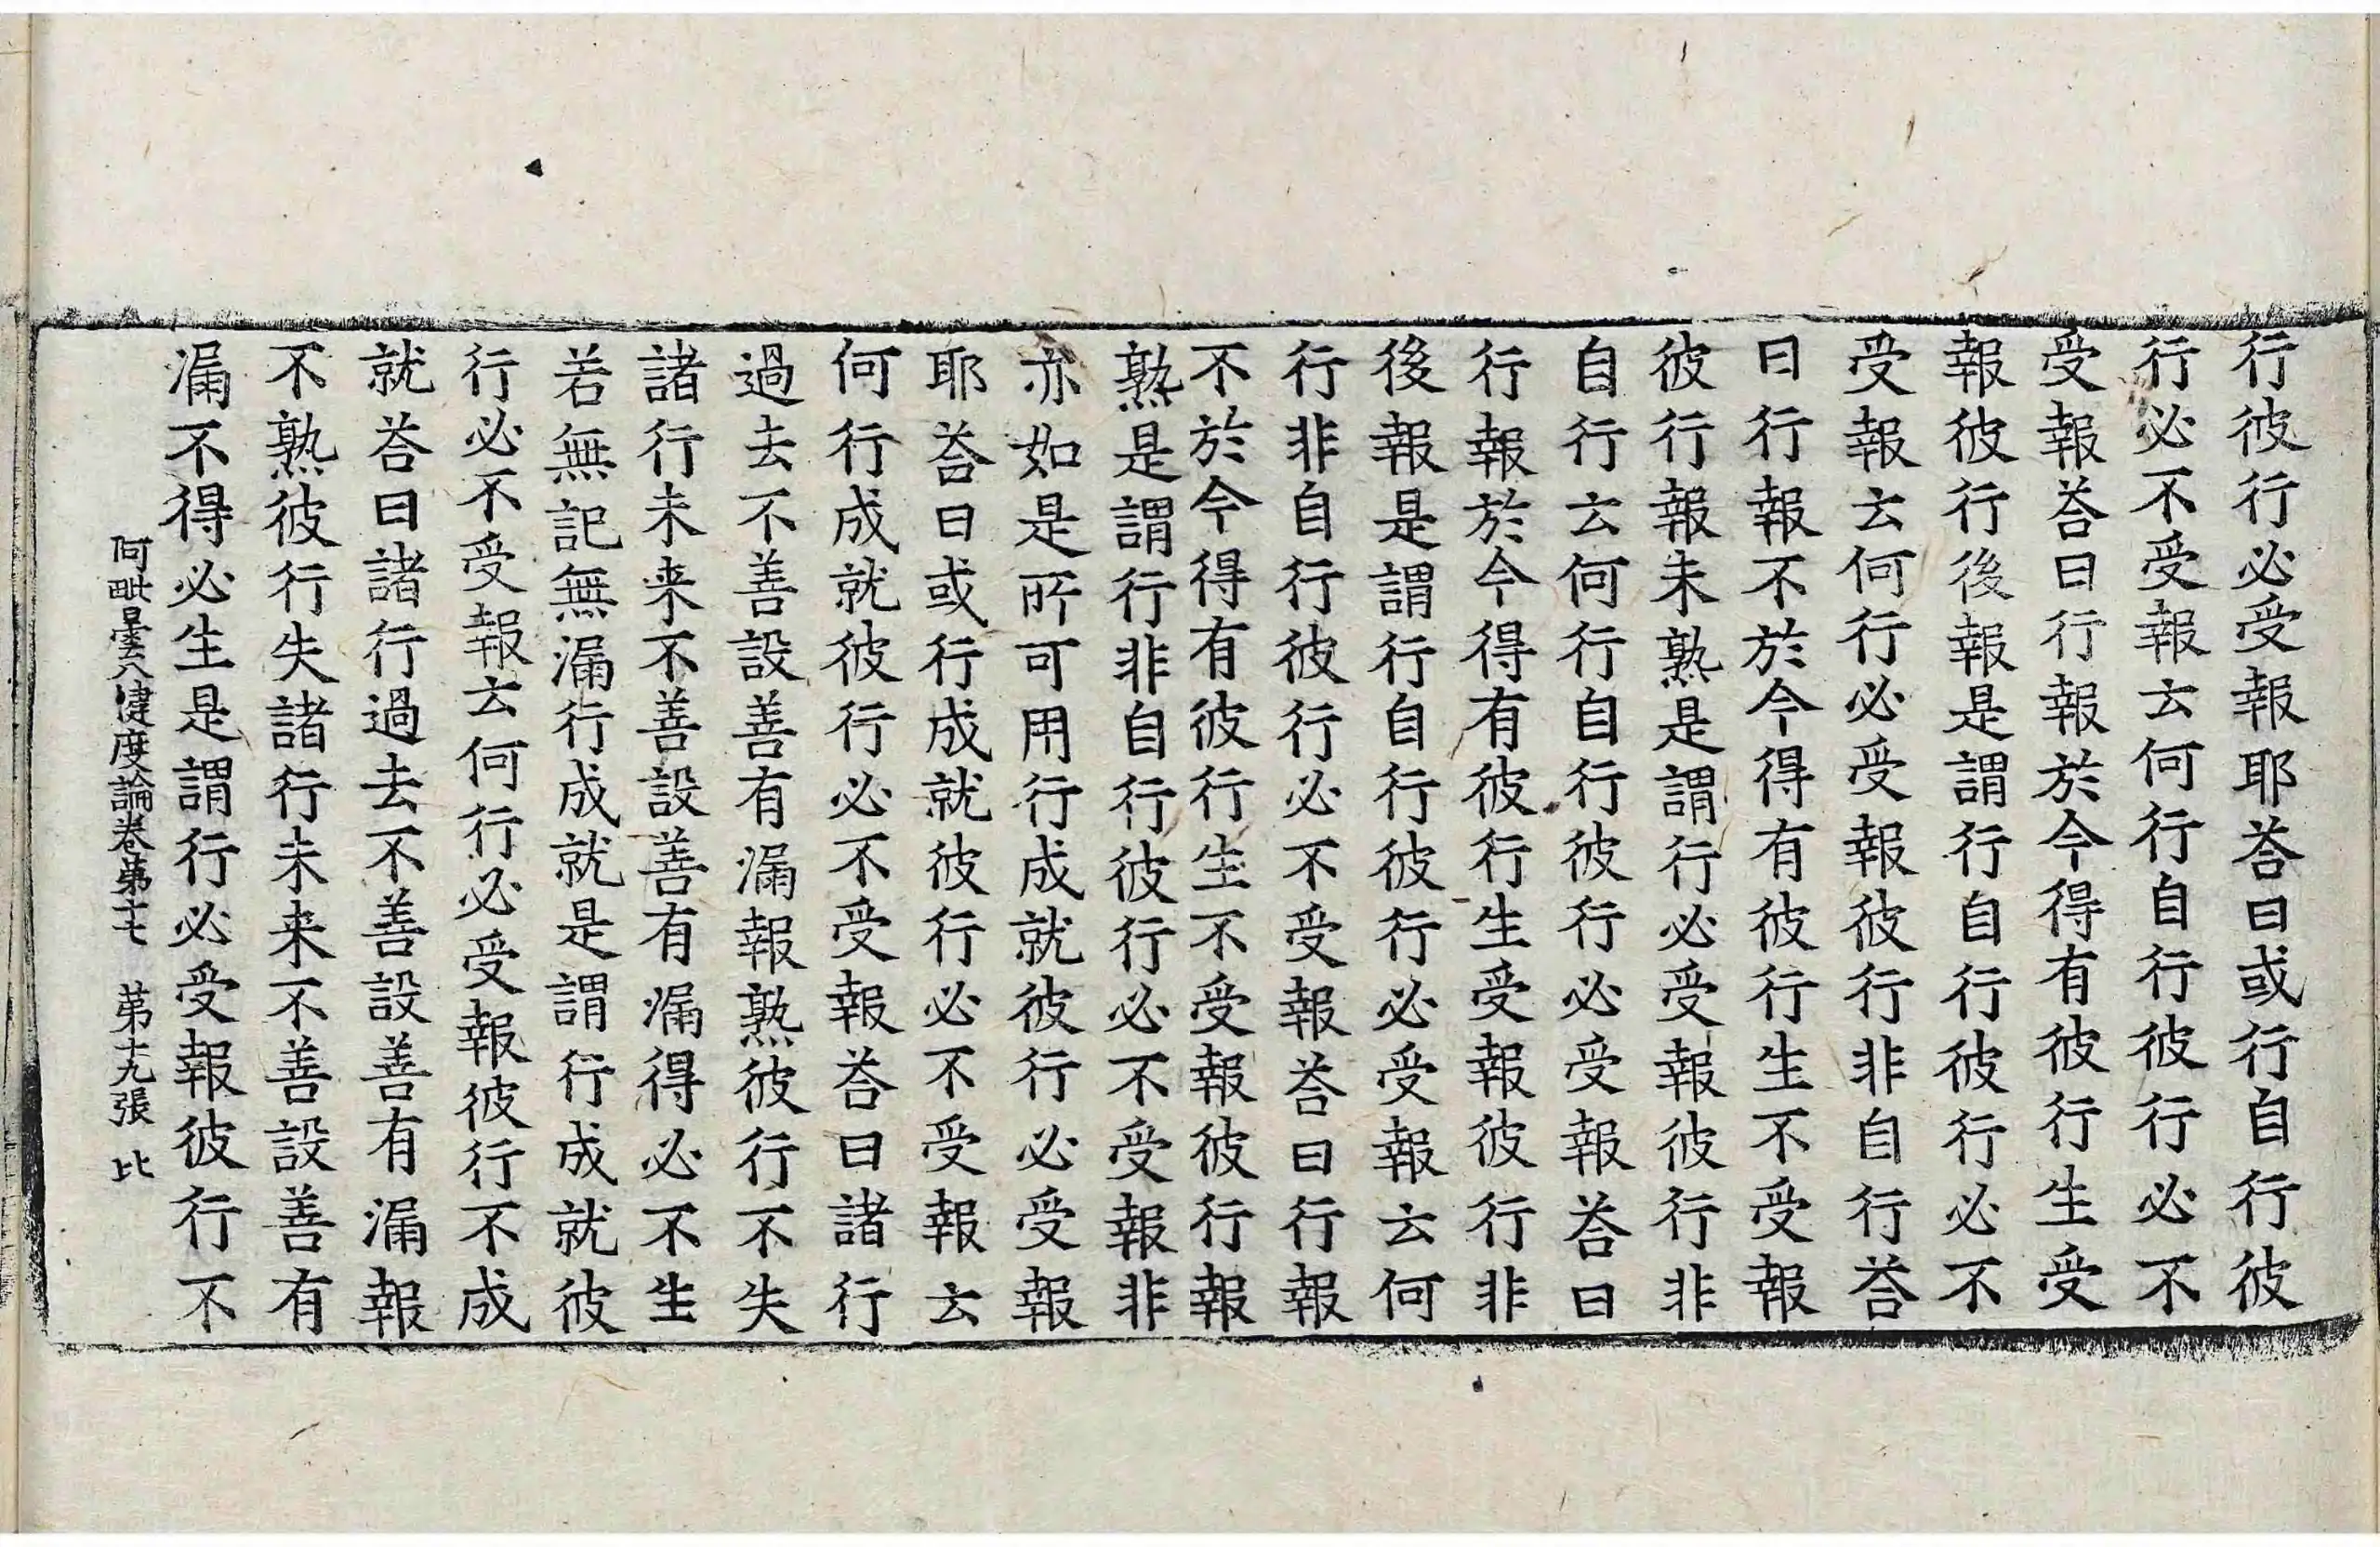 行彼行必受報耶荅曰或行自行彼
行必不受報云何行自行彼行必不
受報荅曰行報於今得有彼行生受
報彼行後報是謂行自行彼行必不
受報云何行必受報彼行非自行荅
曰行報不於今得有彼行生不受報
彼行報未熟是謂行必受報彼行非
自行云何行自行彼行必受報荅曰
行報於今得有彼行生受報彼行非
後報是謂行自行彼行必受報云何
行非自行彼行必不受報荅曰行報
不於今得有彼行生不受報彼行報
熟是謂行非自行彼行必不受報非
亦如是所可用行成就彼行必受報
耶荅曰或行成就彼行必不受報云
何行成就彼行必不受報荅曰諸行
過去不善設善有漏報熟彼行不失
諸行未来不善設善有漏得必不生
若無記無漏行成就是謂行成就彼
行必不受報云何行必受報彼行不成
就荅曰諸行過去不善設善有漏報
不熟彼行失諸行未来不善設善有
漏不得必生是謂行必受報彼行不
阿毗曇八揵度論卷第十七 第十九張 比